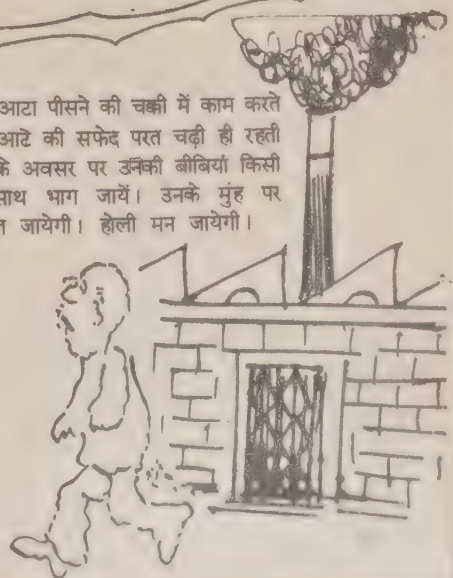 आटा पीसने की चक्की में काम करते
आटे की सफेद परत चढ़ी ही रहती
के अवसर पर उनकी बीबियां किसी
साथ भाग जायें। उनके मुंह पर
जायेगी। होली मन जायेगी।